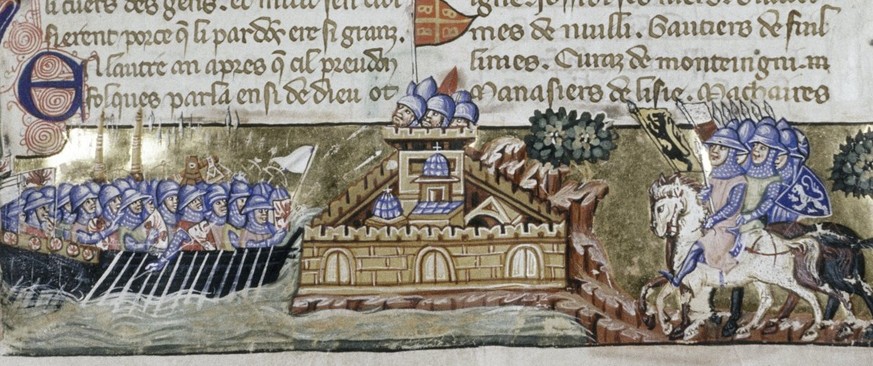 li cuers des gens. et mult sen
sierent porce q̃ li pardõs ere si granz.
En lautre an apres q̃ cil preudõ
folques parla ensi de dieu ot
mes de nuilli. Gautiers de fuil
limes. Euraz de monteingni. m
Manasiers de lisle. Machaires